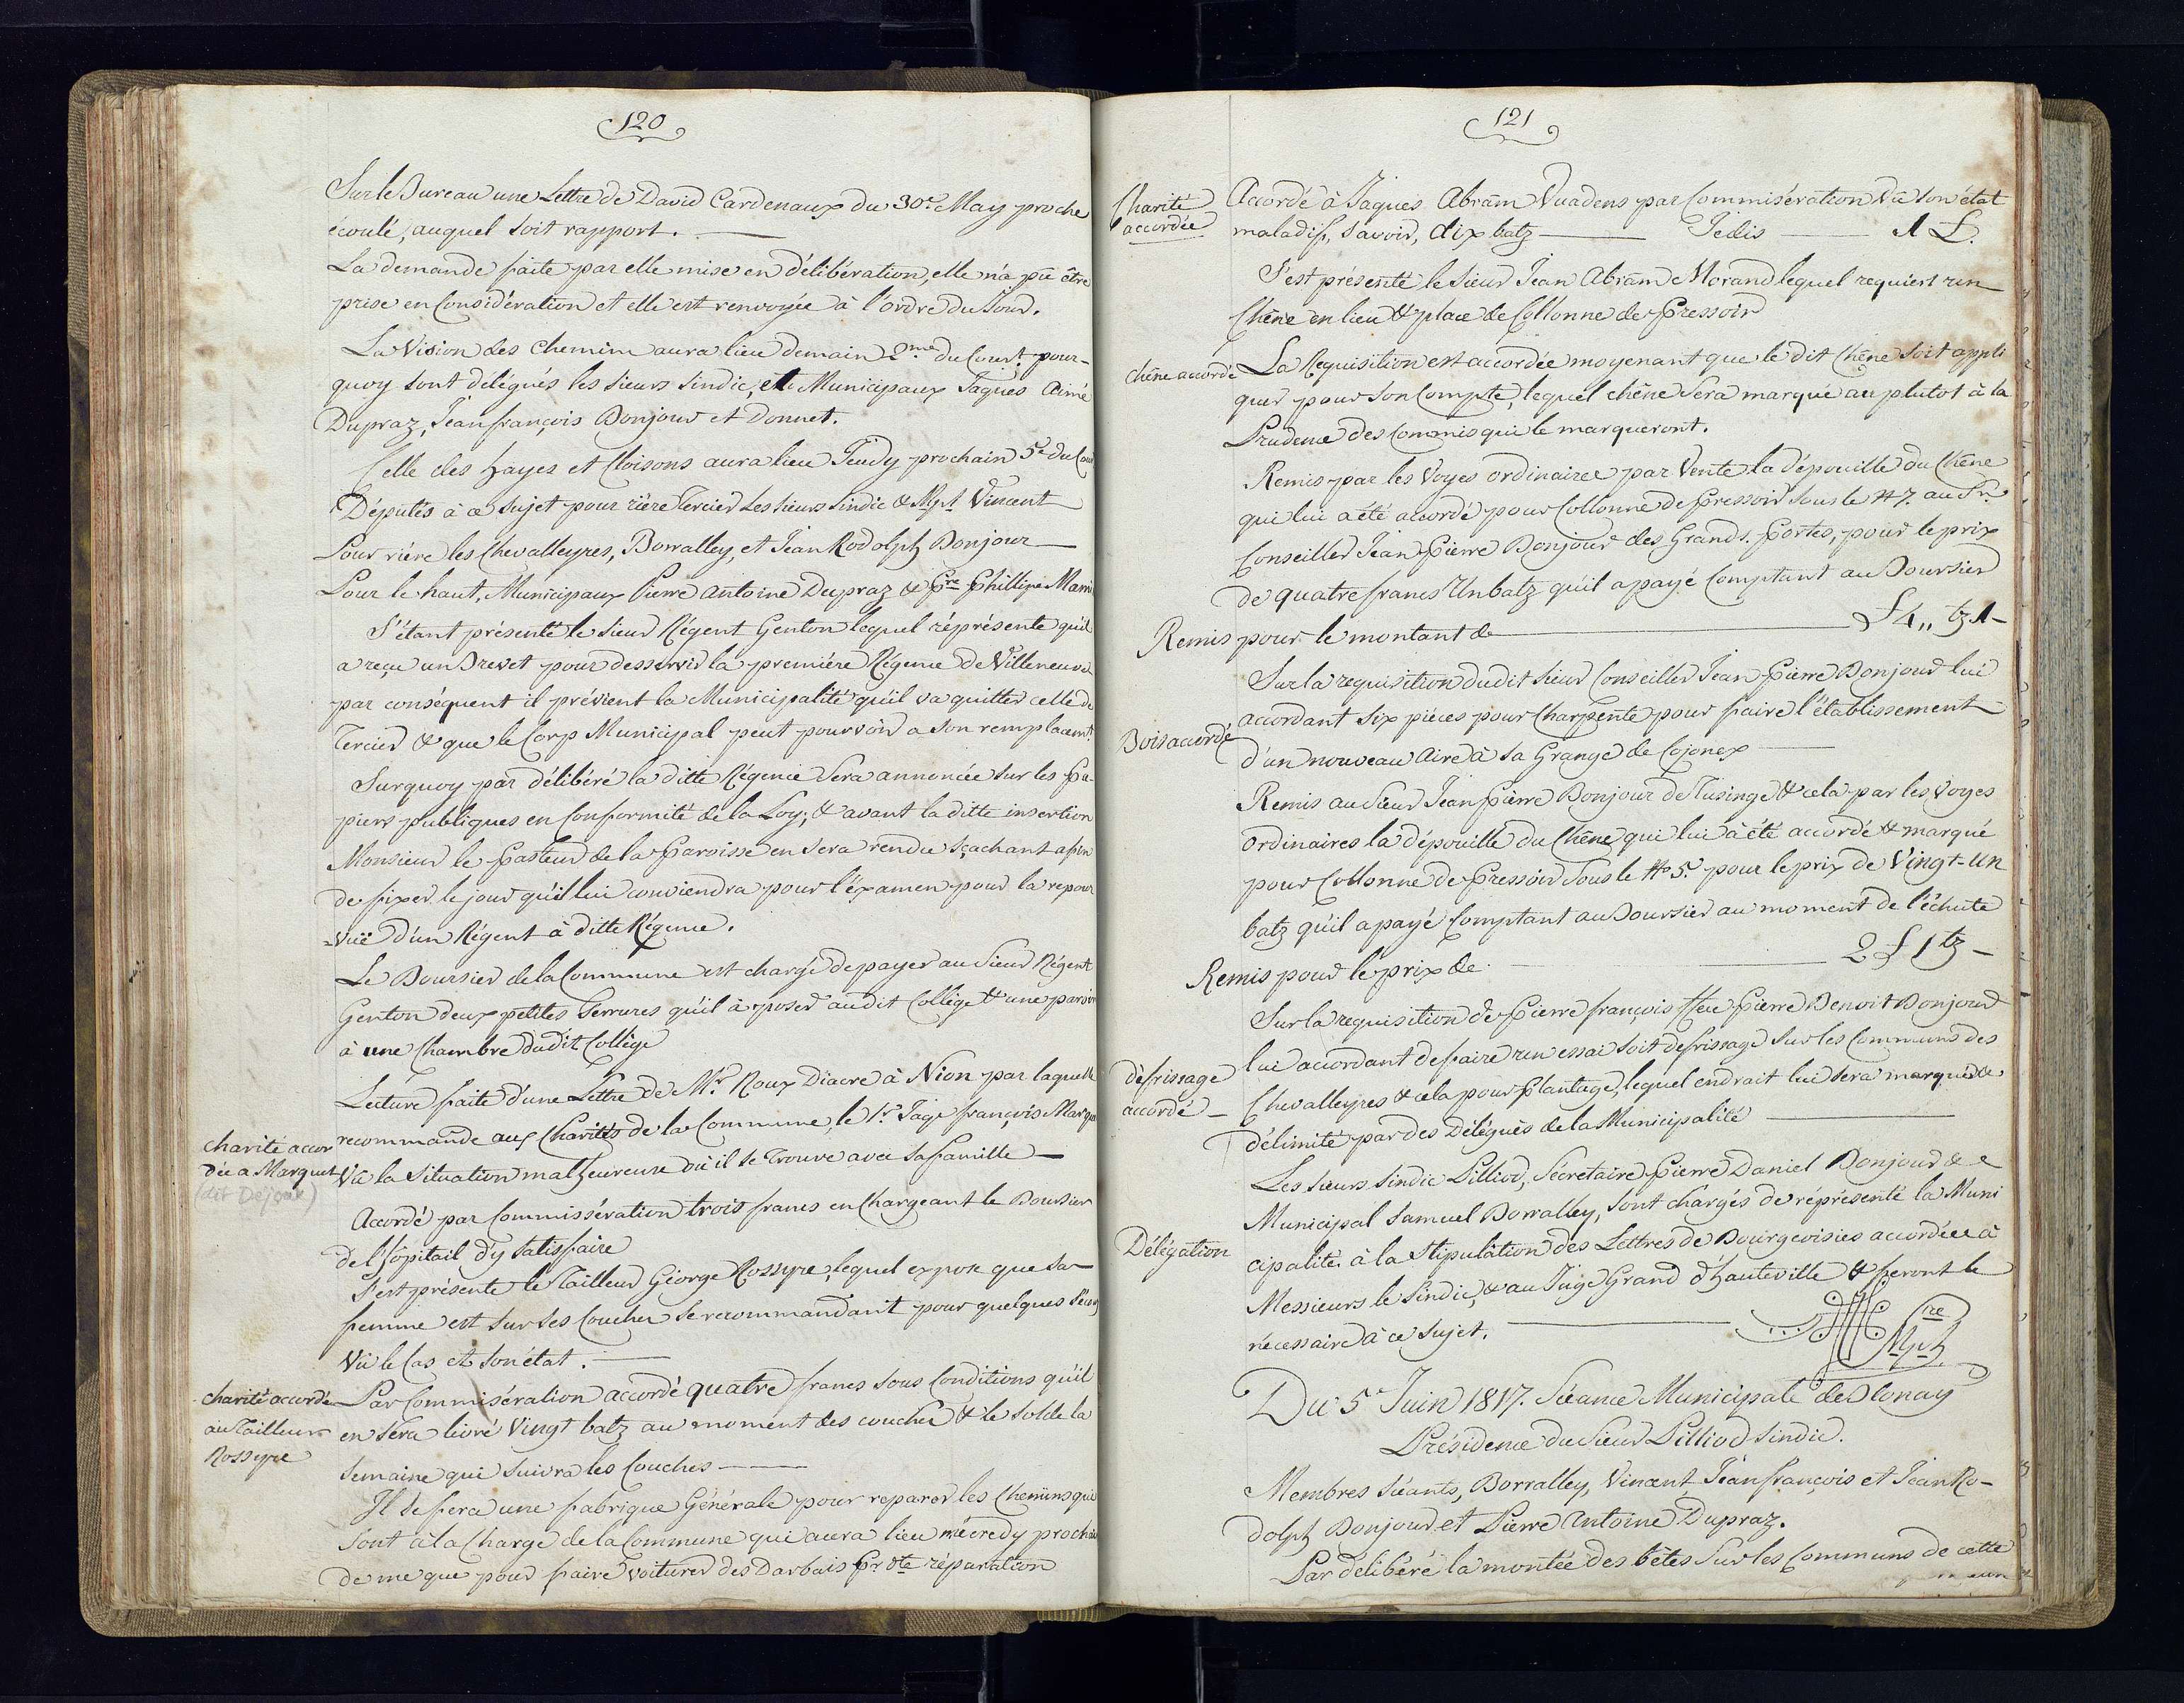 120
Sur le Bureau une Lettre de David Cardenaux du 30e. May proche
écoulé, auquel soit rapport.
La demande faite par elle mise en délibération, elle n'a pû être
prise en Considération et elle est renvoyée à l'ordre du Jour.
La Vision des Chemins aura lieu demain 2me. du Court. pour-
quoy sont délégués les sieurs sindic, et Municipaux Jaques Aimé
Dupraz, Jean françois Bonjour et Donnet.
Celle des hayes et Cloisons aura lieu Jeudy prochain 5e du Cou
Députés à ce sujet pour riére Tercier Les sieurs sindic & Mpl. Vincent
Pour riére les Chevalleyres, Borralley, et Jean Rodolph Bonjour
Pour le haut, Municipaux Pierre Antoine Dupraz & Pre Phillipe Mami
S'étant présenté le sieur Régent Genton lequel réprésente qu'il
a reçu un Brevet pour desservir la premiére Régence de Villeneuve
par conséquent il prévient la Municipalité qu'il va quitter celle de
Tercier & que le Corp Municipal peut pourvoir a son remplacemt.
Surquoy par délibéré la ditte Régence sera annoncée sur les Pa-
piers publiques en Conformité de la Loy; & avant la ditte insertion
Monsieur le Pasteur de la Paroisse en sera rendu sçachant afin
de fixer le jour qu'il lui conviendra pour l'éxamen pour la repour
-vuë d'un Régent à ditte Régence.
Le Boursier de la Commune est chargé de payer au Sieur Régent
Genton deux petites serrures qu'il à poser audit Collége & une paroi
à une Chambre dudit Collége
Lecture faite d'une Lettre de Mr. Roux Diacre à Nion par laquelle
charité accor recommande aux Charités de la Commune, le Sr. Jaqe françois Marque
dée a Marquet Vû la situation malheureuse où il se trouve avec sa famille
(dit Dejoux)
Accordé par Commissération trois francs en Chargeant le Boursier
de l'hôpitail d'y satisfaire
S'est présenté le Tailleur George Rossyre, lequel expose que sa
femme est sur ses Couches se recommandant pour quelques sécou
Vû le Cas et son état.
charité accordée Par Commisération accordé quatre francs sous Conditions qu'il
au Tailleur en sera livré Vingt batz au moment des couches & le solde la
Rossyre semaine qui suivra les Couches
Il se fera une fabrique Générale pour reparer les Chemins qui
sont à la Charge de la Commune qui aura lieu mécredy prochain
de me que pour faire voiturer des Darbais Pr. dte réparation
121
Charité Accordé à Jaques Abram Vuadens par Commisération Vû son état
accordée maladif, savoir, dix batz Jedis 1 L.
S'est présenté le Sieur Jean Abram Morand lequel requiert un
Chêne en lieu & place de Collonne de Pressoir
chêne accordé La Requisition est accordée moyenant que le dit Chêne soit appli
quer pour son Compte, lequel chêne sera marqué au plutot à la
Prudence des Commis qui le marqueront.
Remis par les Voyes ordinaires par Vente la dépouille du Chêne
qui lui a été accordé pour Collonne de Pressoir sous le N° 7. au Sr.
Conseiller Jean Pierre Bonjour des Grands. Portes, pour le prix
de quatre francs Un batz qu'il a payé Comptant au Boursier
Remis pour le montant de £ 4,, bz 1-
Sur la requisition dudit Sieur Conseiller Jean Pierre Bonjour lui
accordant six piéces pour Charpente pour faire l'établissement
Bois accordé d'un nouveau Aire à sa Grange de Cojonex
Remis au Sieur Jean Pierre Bonjour de Tusinge & cela par les Voyes
ordinaires la dépouille du Chêne qui lui à été accordé & marqué
pour Collonne de Pressoir sous le N° 5. pour le prix de Vingt-un
batz qu'il a payé Comptant au Boursier au moment de l'échute
Remis pour le prix de 2 £ 1 bz -
Sur la requisition de Pierre françois ffeu Pierre Benoit Bonjour
défrissage lui accordant de faire un essai soit defrissage sur les Communs des
accordé Chevalleyres & cela pour Plantage, lequel endrait lui sera marqué &
délimité par des Délégués de la Municipalité
Les sieurs Sindic Pilliod, Sécretaire Pierre Daniel Bonjour &
Municipal Samuel Borralley, sont chargés de réprésenté la Muni
Délégation cipalité à la Stipulation des Lettres de Bourgeoisies accordées à
Messieurs le Sindic, & au Juge Grand d'hauteville & feront le
nécessaire à ce sujet.
Du 5e Juin 1817. Séance Municipale de Blonay
Présidence du Sieur Pilliod Sindic.
Membres séants, Borralley, Vincent, Jean françois et Jean Ro-
dolph Bonjour et Pierre Antoine Dupraz.
Par délibéré la montée des bêtes sur les Communs de cette